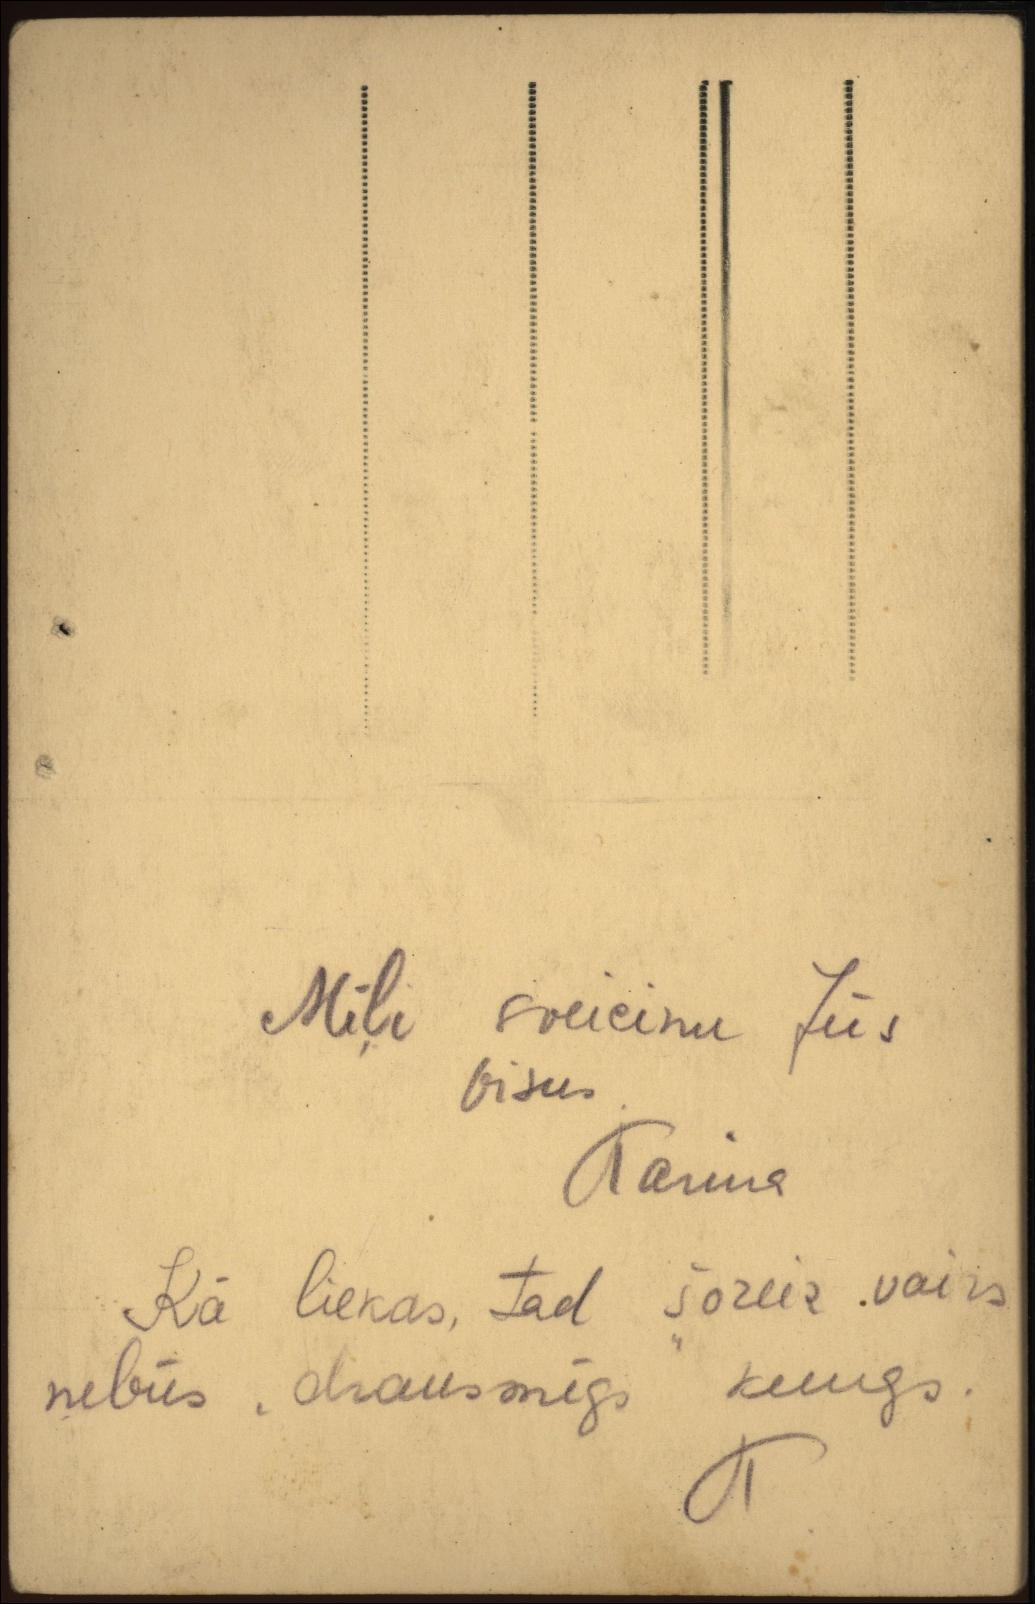 Mīļi sveicinu Jūs
visus.
Tanina
Kā liekas, tad šoreiz vairs
nebūs „drausmīgs" kungs.
T